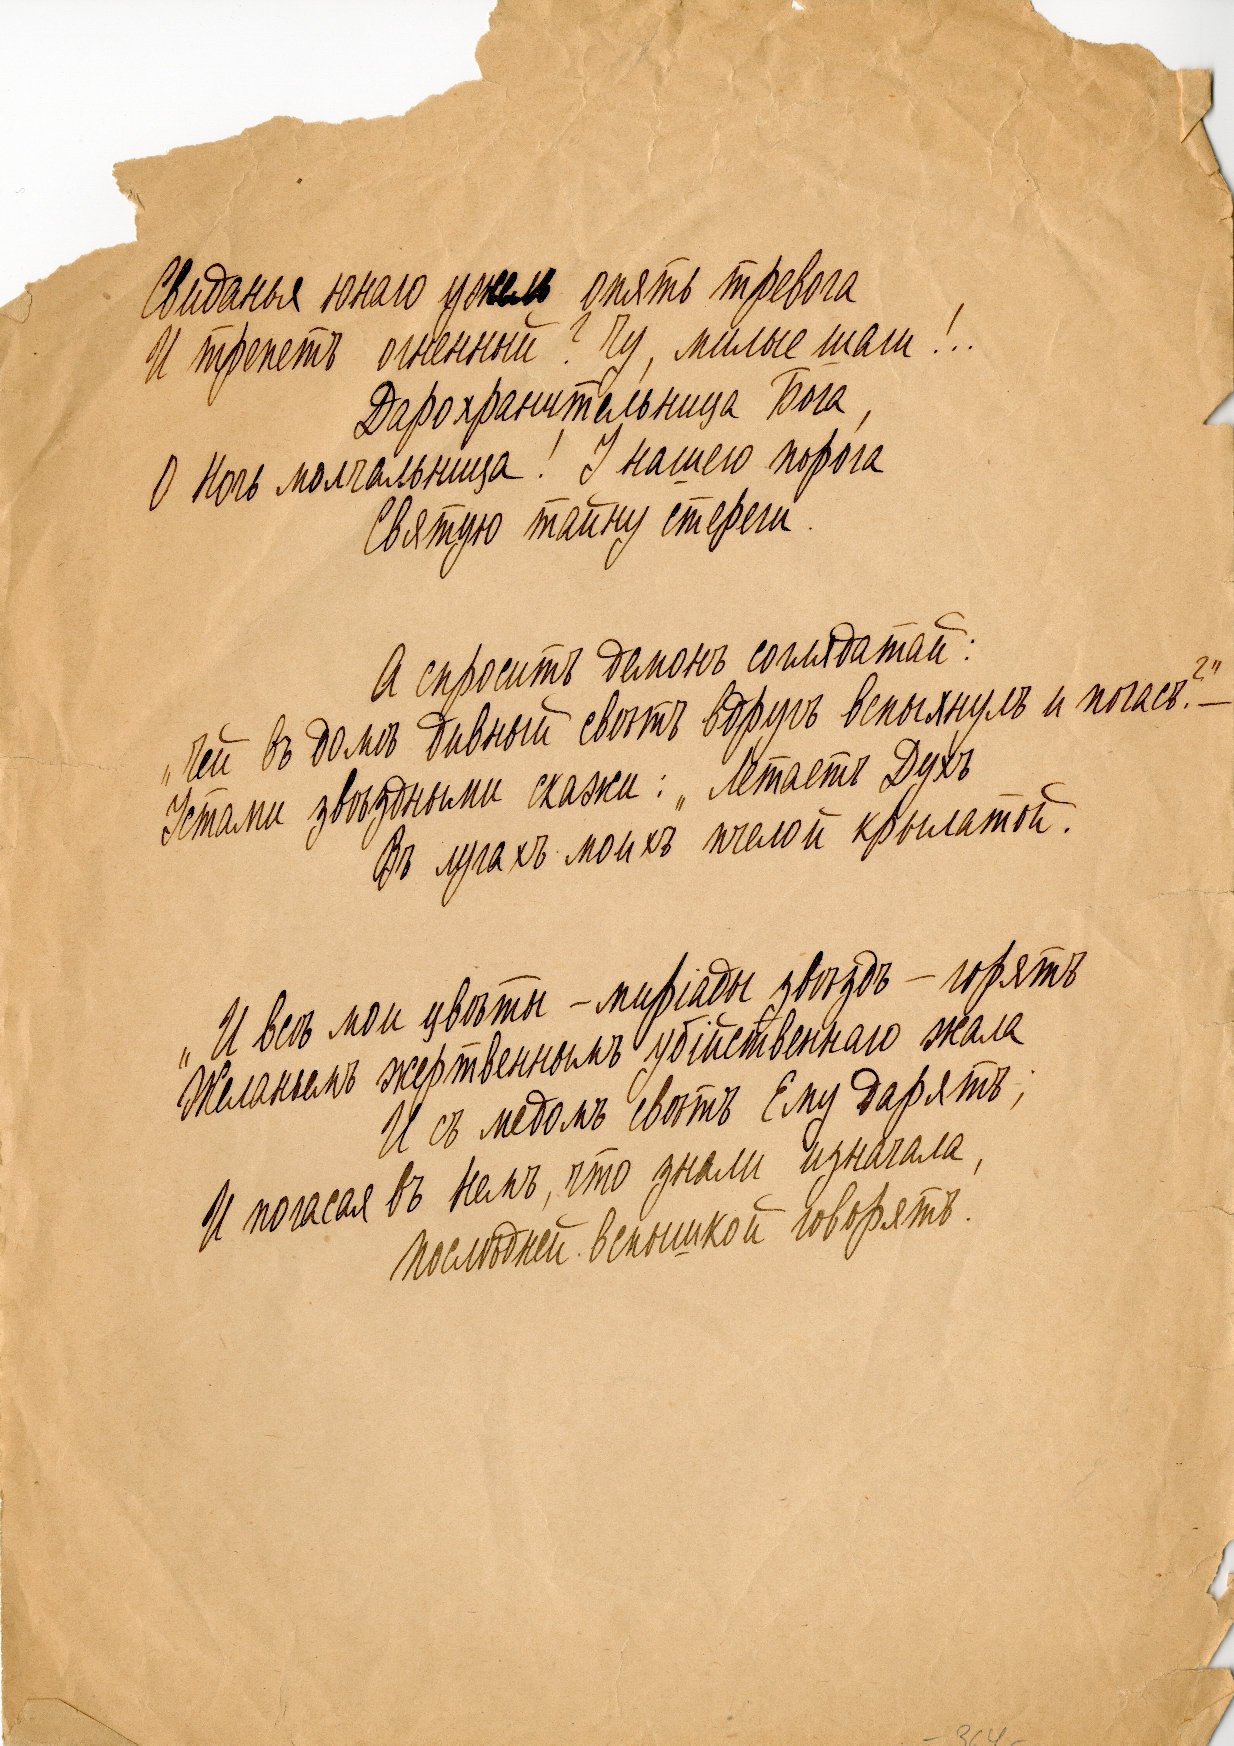 Свиданья юнаго ужель опять тревога
И трепетъ огненный? Чу, милые шаги!..
Дарохранительница Бога,
О Ночь молчальница! У нашего порога
Святую тайну стереги.
А спроситъ демонъ соглядатай:
„Чей въ домѣ дивный свѣтъ вдругъ вспыхнулъ и погасъ?" —
Устами звѣздными скажи: „Летаетъ Духъ
Въ лугахъ моихъ пчелой крылатой.
„И всѣ мои цвѣты – миріады звѣздъ – горятъ
Желаньемъ жертвеннымъ убійственнаго жала
И съ медомъ свѣтъ Ему дарятъ;
И погасая въ Немъ, что знали изначала,
Послѣдней вспышкой говорятъ.
– 364 –